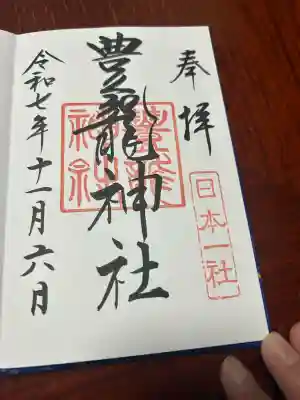 奉拝
日本一社
豊龍神社
豊龍神社
令和七年十一月六日